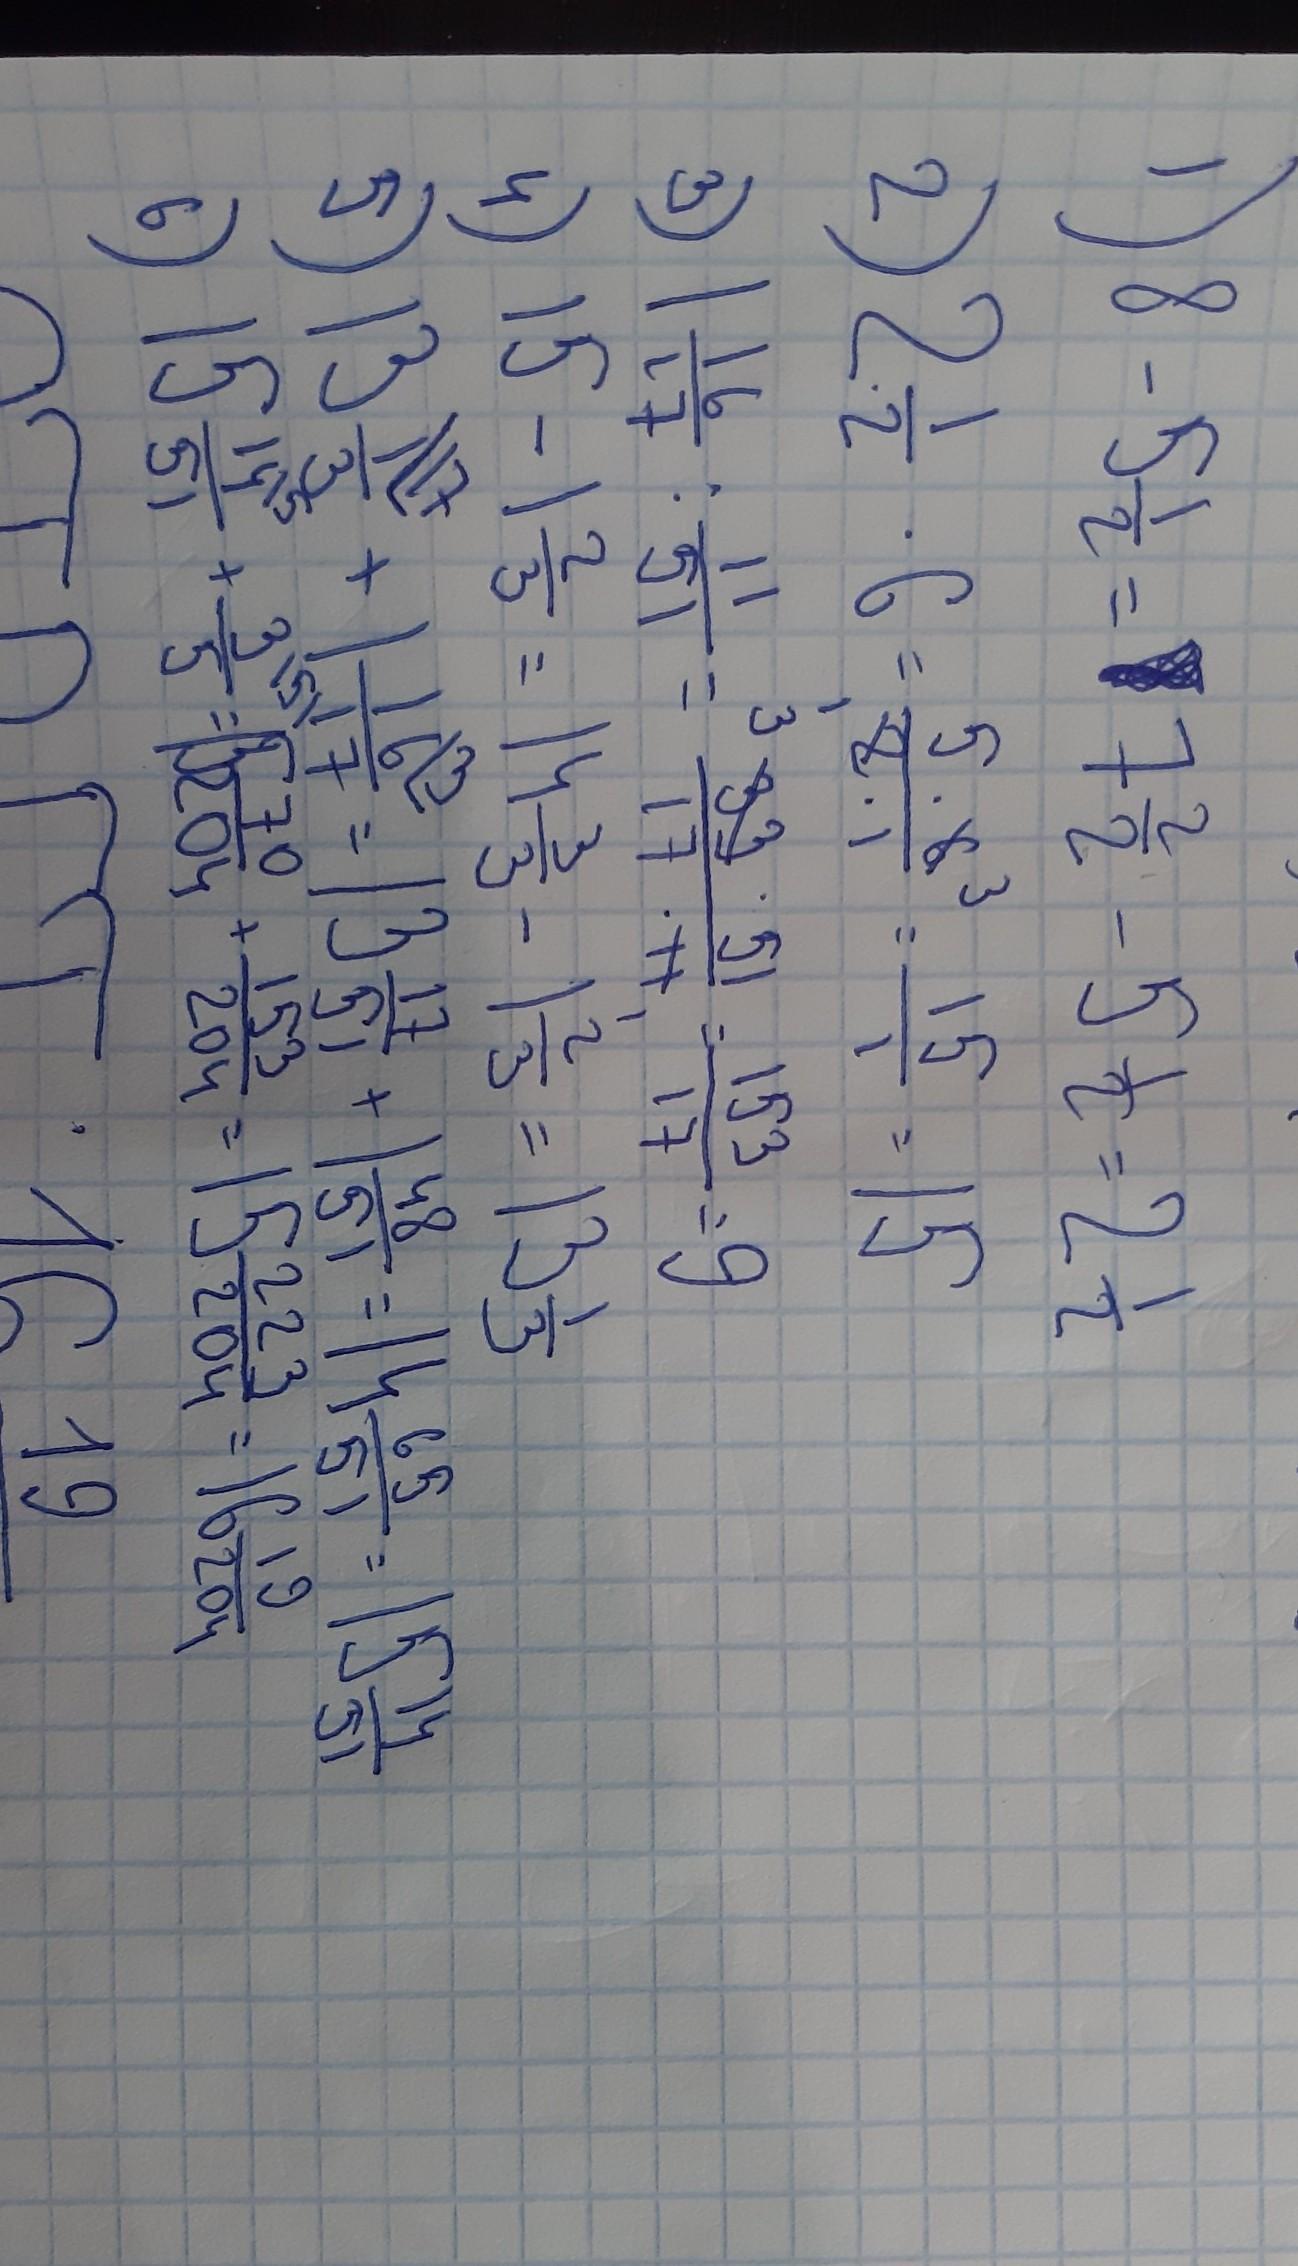 1) 8 - 5 1/2 = 7 2/2 - 5 1/2 = 2 1/2
2) 2 1/2 · 6 = 5·6/2·1 = 15/1 = 15
3) 1 16/17 : 11/51 = 33·51/17·11 = 153/17 = 9
4) 15 - 1 2/3 = 14 3/3 - 1 2/3 = 13 1/3
5) 13 1/3 + 1 16/17 = 13 17/51 + 1 48/51 = 14 65/51 = 15 14/51
6) 15 14/51 + 3/5 = 15 70/204 + 153/204 = 15 223/204 = 16 19/204
16 19